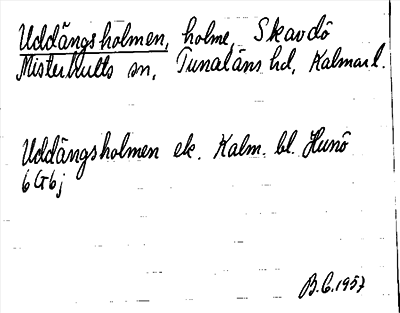 Uddängsholmen, holme, Skavdö
Misterhults sn, Tunaläns hd, Kalmar l.
Uddängsholmen ek. Kalm. bl. Hunö
6 G 6 j
B.C. 1957